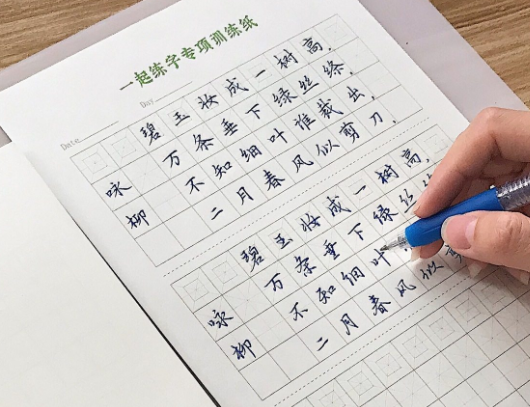 一起练字专项训练纸
Date
Day
咏柳
碧玉妆成一树高,
万条垂下绿丝绦.
不知细叶谁裁出,
二月春风似剪刀.
咏柳
碧玉妆成一树高,
万条垂下绿丝
不知细叶
二月春风似